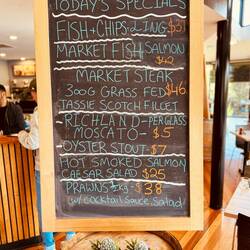 TODAY'S SPECIALS
FISH+CHIPS-LING $31
MARKET FISH SALMON
$42
MARKET STEAK
300G GRASS FED $46
TASSIE SCOTCH FILLET
RICHLAND - PER GLASS
MOSCATO - $5
OYSTER STOUT - $7
HOT SMOKED SALMON
CAESAR SALAD $25
PRAWNS ½kg - $38
w/ COCKTAIL SAUCE, SALAD